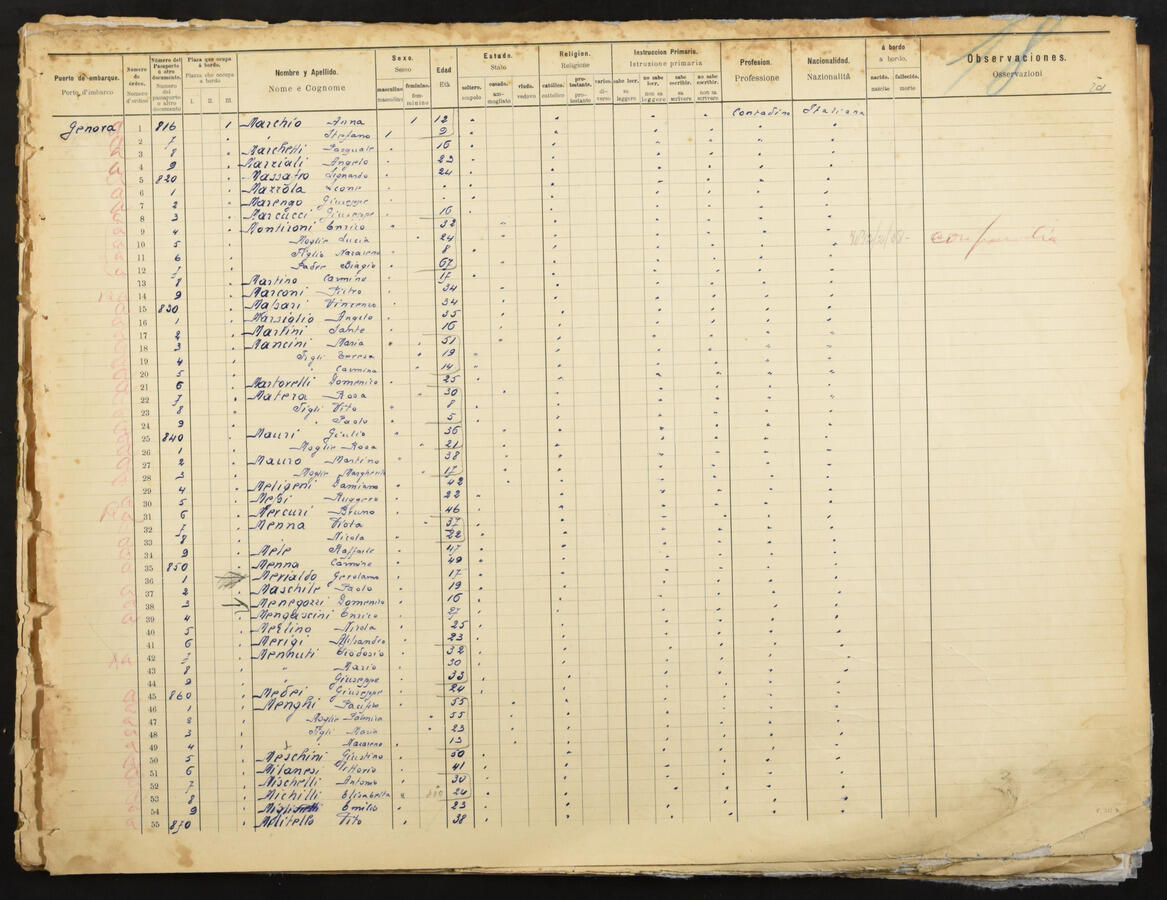 18
Puerto de embarque.
Porto d'imbarco
Número de órden.
Numero d'ordine
Número del Pasaporte ó otro documento.
Numero del passaporto o altro documento
Plaza que ocupa á bordo.
Piazza che occupa a bordo
I. II. III.
Nombre y Apellido.
Nome e Cognome
Sexo.
Sesso
masculino femenino.
maschino femminino
Edad
Età
Estado.
Stato
soltero. casado. viudo.
scapolo ammogliato vedovo
Religion.
Religione
católica. protestante. varios.
cattolico protestante diverso
Instruccion Primaria.
Istruzione primaria
sabe leer. no sabe leer. sabe escribir. no sabe escribir.
sa leggere non sa leggere sa scrivere non sa scrivere
Profesion.
Professione
Nacionalidad.
Nazionalità
á bordo
a bordo.
nacido. fallecido.
nascite morte
Observaciones.
Osservazioni
Genova 1 816 1 Marchio Anna 1 12 Contadino Italiana
2 7 Stefano 1 9
3 8 Marchetti Pasquale 16
4 9 Marziali Angelo 23
5 820 Massafro Leonardo 24
6 1 Mazzola Leone
7 2 Marengo Giuseppe
8 3 Marcucci Giuseppe 16
9 4 Montironi Enrico 32
10 5 Moglie Lucia 24
11 6 Figlio Nazareno 8
12 7 Padre Biagio 67
13 8 Martino Carmine 17
14 9 Marconi Pietro 34
15 830 Massari Vincenzo 34
16 1 Marsiglio Angelo 35
17 2 Martini Sante 16
18 3 Mancini Maria 51
19 4 Figli Teresa 19
20 5 Carmina 14
21 6 Martorelli Domenico 25
22 7 Matera Rosa 30
23 8 Figli Vito 8
24 9 Paolo 5
25 840 Mauri Giulio 36
26 1 Moglie Rosa 21
27 2 Mauro Martino 38
28 3 Moglie Margherita 17
29 4 Meligeni Damiano 42
30 5 Ruggero 22
31 6 Mercuri Bruno 46
32 7 Menna Viola 37
33 8 Nicola 22
34 9 Mele Raffaele 47
35 850 Menna Carmine 49
36 1 Merialdo Gerolamo 17
37 2 Maschile Paolo 19
38 3 Menegozzi Domenico 16
39 4 Mengascini Enrico 27
40 5 Merlino Nicola 25
41 6 Merigi Alessandro 23
42 7 Mennuti Teodosio 32
43 8 Mario 30
44 9 Giuseppe 33
45 860 Medei Giuseppe 24
46 1 Menghi Pacifico 55
47 2 Moglie Palmira 55
48 3 Figli Maria 23
49 4 Nazareno 13
50 5 Meschini Giustino 50
51 6 Milanesi Vittorio 41
52 7 Mischelli Antonio 30
53 8 Michilli Elisabetta 24
54 9 Emilio 23
55 870 Melitello Vito 38